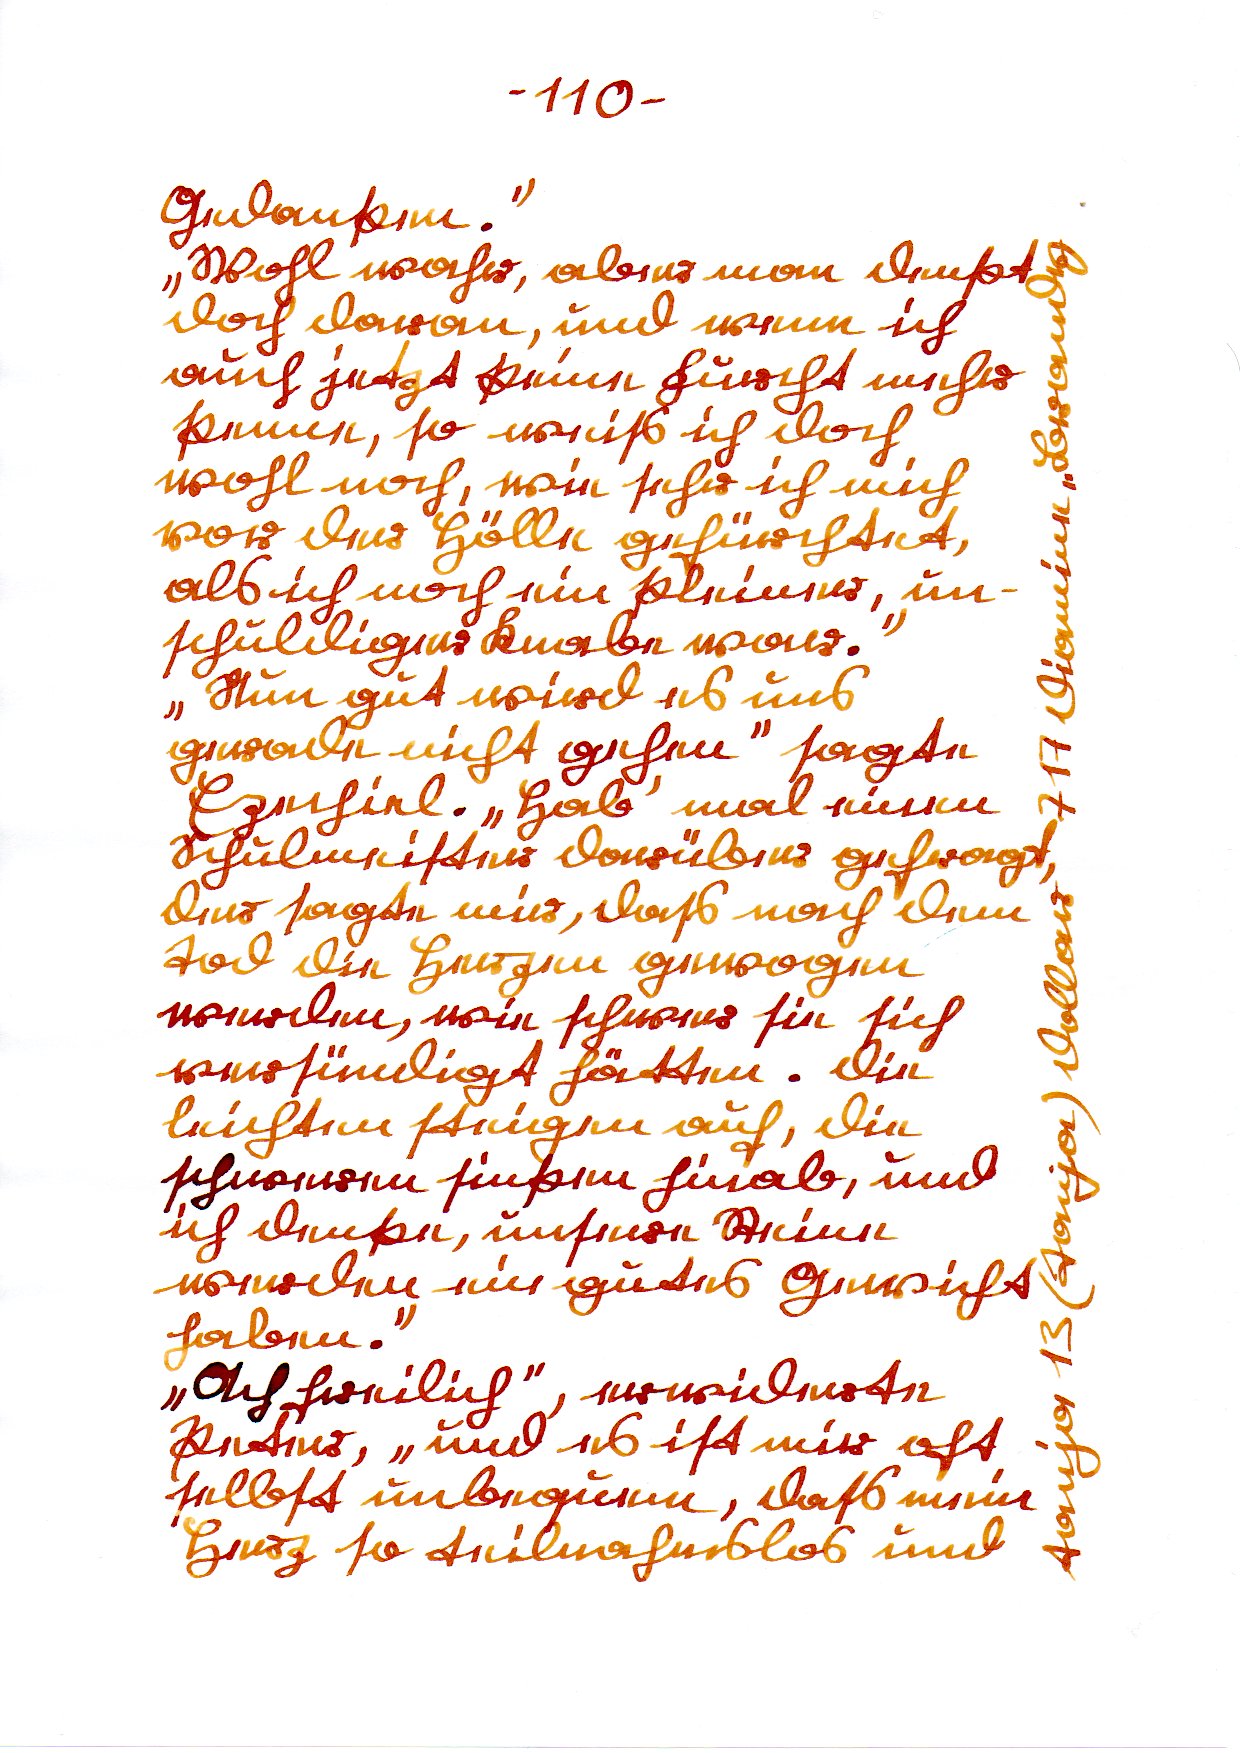 -110-
Gedanken."
„Wohl wahr, aber man denkt
doch daran, und wenn ich
auch jetzt keine Furcht mehr
kenne, so weiß ich doch
wohl noch, wie sehr ich mich
vor der Hölle gefürchtet,
als ich noch ein kleiner, un-
schuldiger Knabe war."
„Nun gut wird es uns
gerade nicht gehen" sagte
Ezechiel. „Hab' mal einen
Schulmeister darüber gefragt,
der sagte mir, daß nach dem
Tod die Herzen gewogen
werden, wie schwer sie sich
versündigt hätten. Die
leichten steigen auf, die
schweren sinken hinab, und
ich denke, unsere Steine
werden ein gutes Gewicht
haben."
„Ach freilich", erwiderte
Peter, „und es ist mir oft
selbst unbequem, daß mein
Herz so teilnahmslos und
13 (Tanja) Dollar 717 Diamine